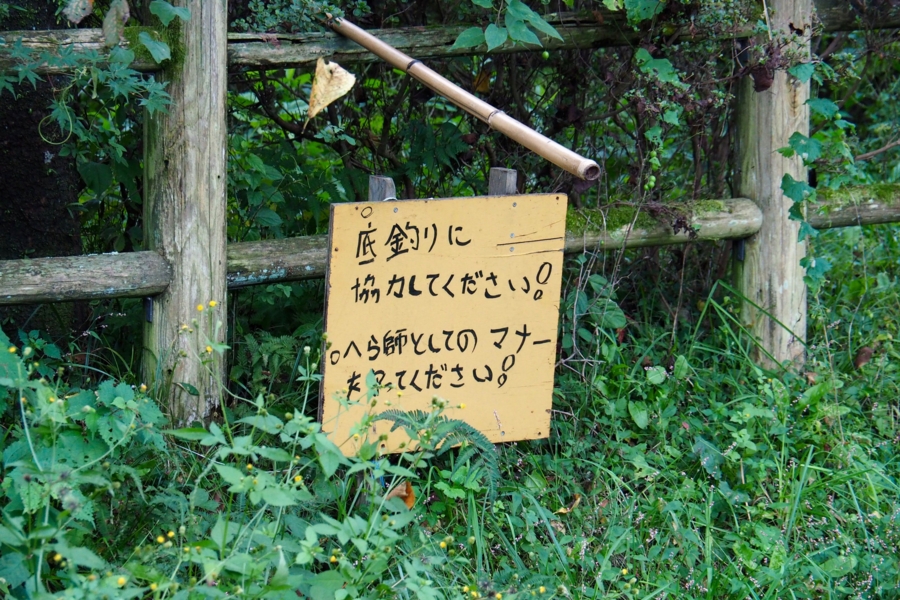 ○底釣りに
協力してください!
○へら師としてのマナー
を守ってください!